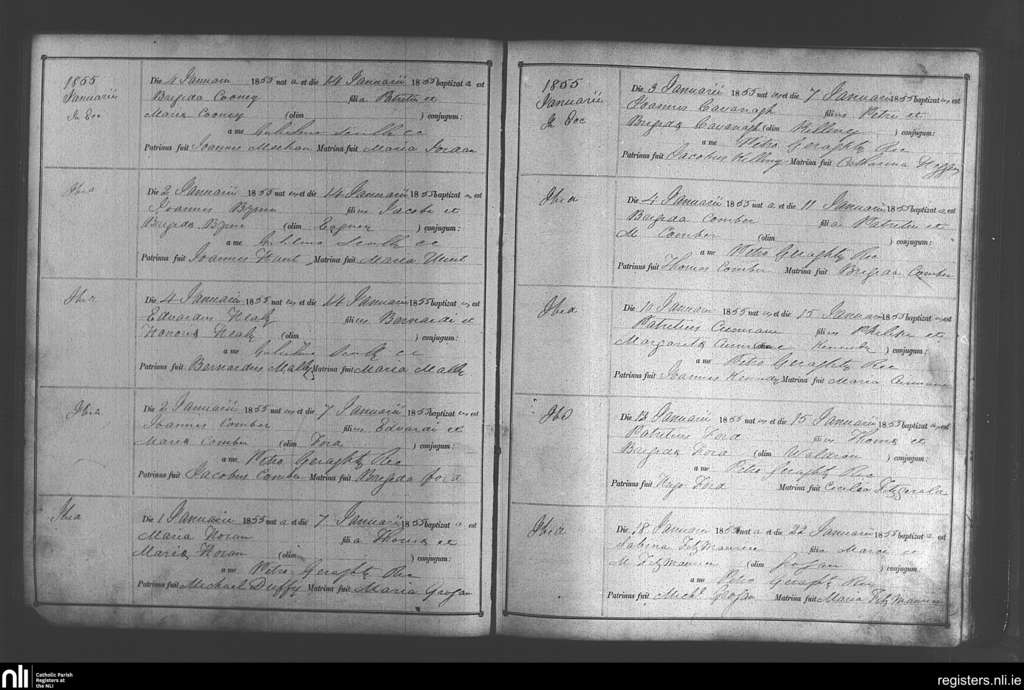 1855
Januarii
In Eoc
Die 4 Januarii 1855 nat a et die 14 Januarii 1855 baptizat a est
Brigida Cooney fili a Patritii et
Maria Cooney (olim ) conjugum:
a me
Patrinus fuit Joannes Meehan Matrina fuit Maria Jordan
Ibid
Die 2 Januarii 1855 nat us et die 14 Januarii 1855 baptizat us est
Joannes Byrne fili us Jacobi et
Brigida Byrne (olim ) conjugum:
a me
Patrinus fuit Joannes Hunt Matrina fuit Maria Hunt
Ibid
Die 4 Januarii 1855 nat us et die 14 Januarii 1855 baptizat us est
Edvardus Healy fili us Bernardi et
Honoria Healy (olim ) conjugum:
a me
Patrinus fuit Bernardus Matrina fuit Maria
Ibid
Die 2 Januarii 1855 nat us et die 7 Januarii 1855 baptizat us est
Joannes Comber fili us Edvardi et
Maria Comber (olim Ford ) conjugum:
a me Petro Geraghty Rec
Patrinus fuit Jacobus Comber Matrina fuit Brigida Ford
Ibid
Die 1 Januarii 1855 nat a et die 7 Januarii 1855 baptizat a est
Maria Horan fili a Thoma et
Maria Horan (olim ) conjugum:
a me Petro Geraghty Rec
Patrinus fuit Michael Duffy Matrina fuit Maria Grogan
1855
Januarii
In Eoc
Die 3 Januarii 1855 nat us et die 7 Januarii 1855 baptizat us est
Joannes Cavanagh fili us Petri et
Brigida Cavanagh (olim Killeny ) conjugum:
a me Petro Geraghty Rec
Patrinus fuit Jacobus Killeny Matrina fuit Catharina
Ibid
Die 4 Januarii 1855 nat a et die 11 Januarii 1855 baptizat a est
Brigida Comber fili a Patritii et
M Comber (olim ) conjugum:
a me Petro Geraghty Rec
Patrinus fuit Thomas Comber Matrina fuit Brigida Comber
Ibid
Die 10 Januarii 1855 nat us et die 15 Januarii 1855 baptizat us est
Patritius fili us et
Margarita (olim Kennedy ) conjugum:
a me Petro Geraghty Rec
Patrinus fuit Joannes Kennedy Matrina fuit Maria
Ibid
Die 13 Januarii 1855 nat us et die 15 Januarii 1855 baptizat us est
Patritius Ford fili us Thoma et
Brigida Ford (olim Waldron ) conjugum:
a me Petro Geraghty Rec
Patrinus fuit Hugo Ford Matrina fuit Cecilia Fitzgerald
Ibid
Die 18 Januarii 1855 nat a et die 22 Januarii 1855 baptizat a est
Sabina FitzMaurice fili a Marci et
M FitzMaurice (olim Grogan ) conjugum:
a me Petro Geraghty Rec
Patrinus fuit Michl Grogan Matrina fuit Maria FitzMaurice
nli
Catholic Parish
Registers at
the NLI
registers.nli.ie